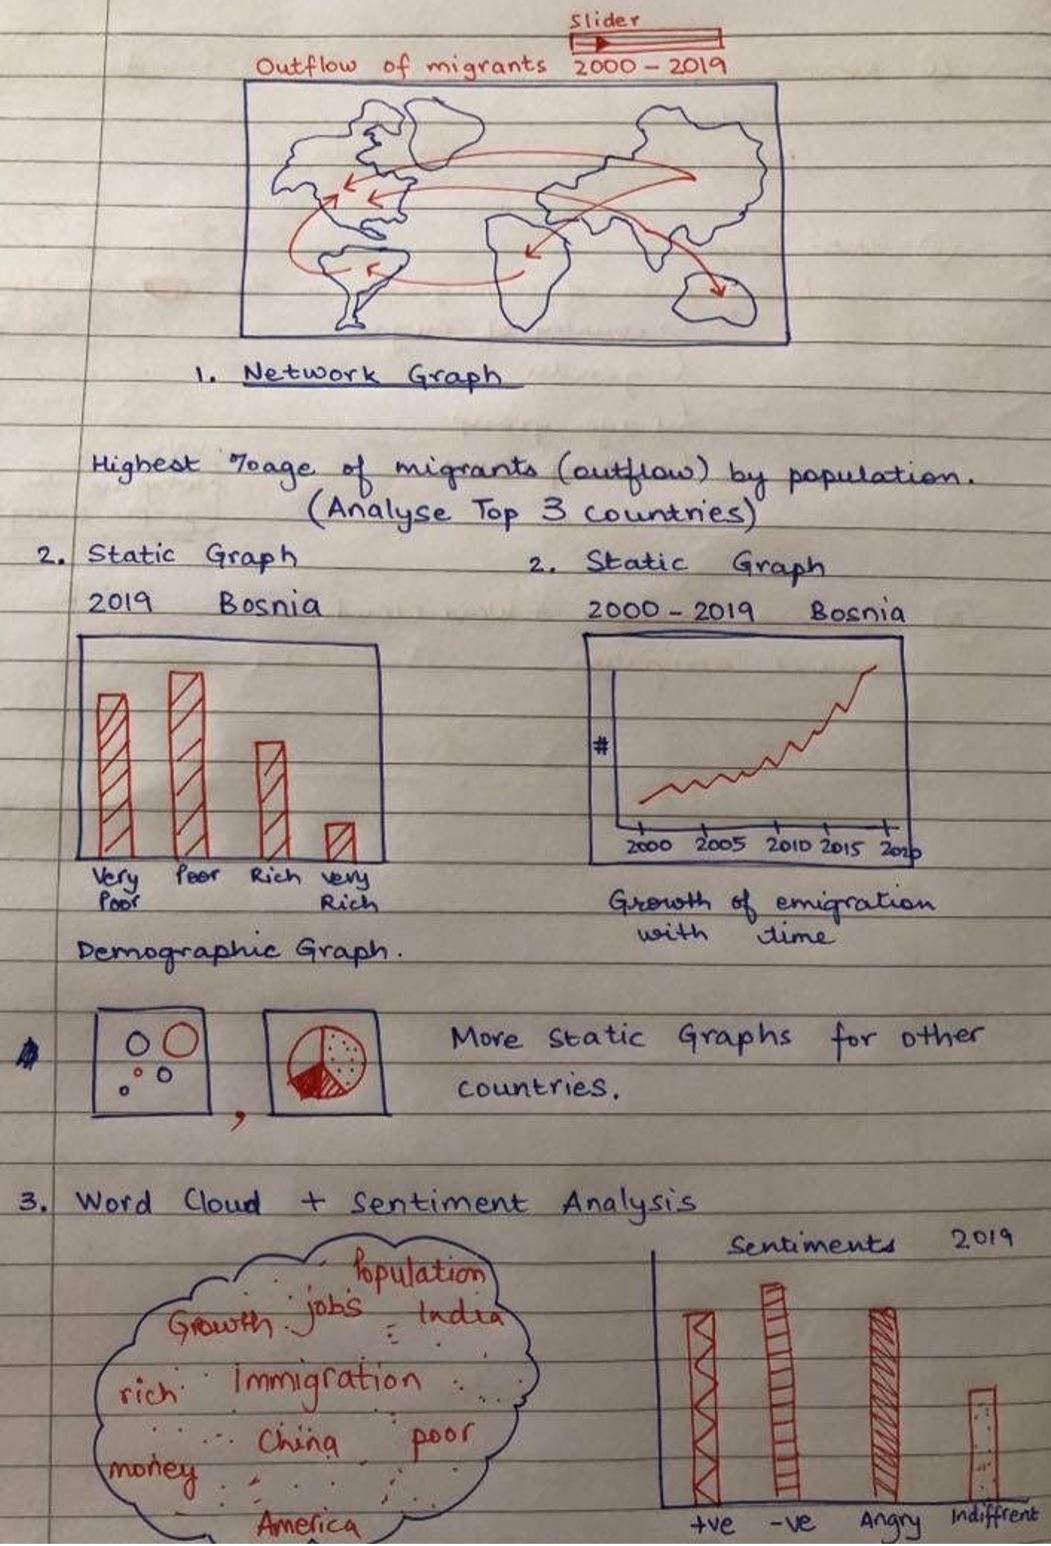 Slider
Outflow of migrants 2000 - 2019
1. Network Graph
Highest %age of migrants (outflow) by population.
(Analyse Top 3 countries)
2. Static Graph
2019 Bosnia
Very Poor
Poor
Rich
very Rich
Demographic Graph.
2. Static Graph
2000 - 2019 Bosnia
#
2000 2005 2010 2015 2020
Growth of emigration
with time
,
More Static Graphs for other
countries.
3. Word Cloud + Sentiment Analysis
Population
Growth jobs India
rich immigration
China poor
money
America
Sentiments 2019
+ve -ve Angry Indiffrent